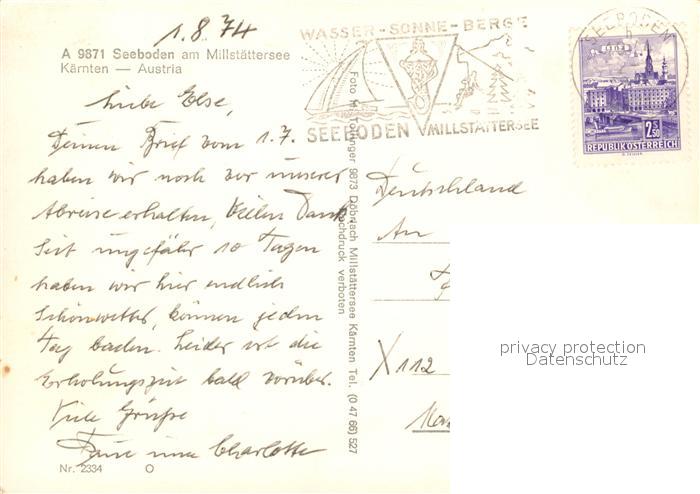 1.8.74
A 9871 Seeboden am Millstättersee
Kärnten — Austria
WASSER - SONNE - BERGE
SEEBODEN MILLSTÄTTERSEE
SEEBODEN
2.50
REPUBLIK ÖSTERREICH
Liebe Else,
Deinen Brief vom 1.7.
haben wir noch vor unserer
Abreise erhalten, Vielen Dank.
Seit ungefähr 10 Tagen
haben wir hier endlich
Schönwetter, können jeden
Tag baden. Leider ist die
Erholungszeit bald vorüber.
Viele Grüsse
Charlotte
Nr. 2334 O
9873 Döbriach Millstättersee Kärnten Tel. (0 47 66) 527
verboten
Deutschland
An
X 112
privacy protection
Datenschutz